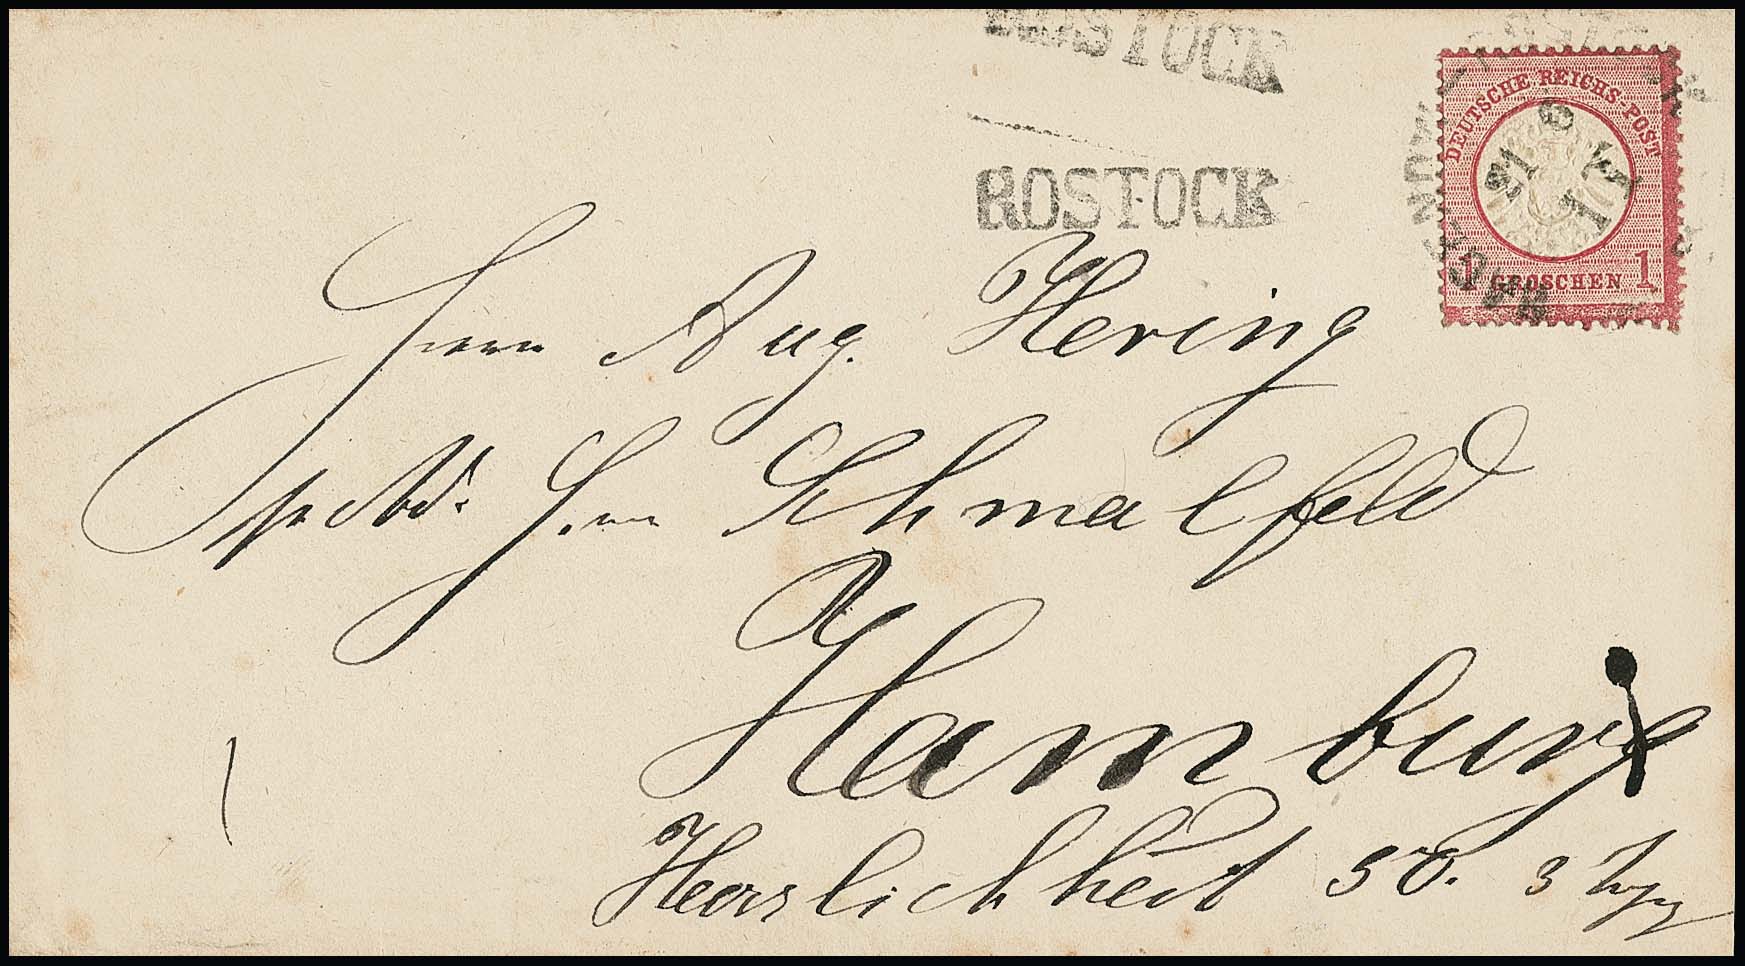 ROSTOCK
ROSTOCK
DEUTSCHE REICHS-POST
21 6
1 GROSCHEN 1
Herrn Aug. Hering
Herrn Schmalfeld
Hamburg
Herrlichkeit 50. 3